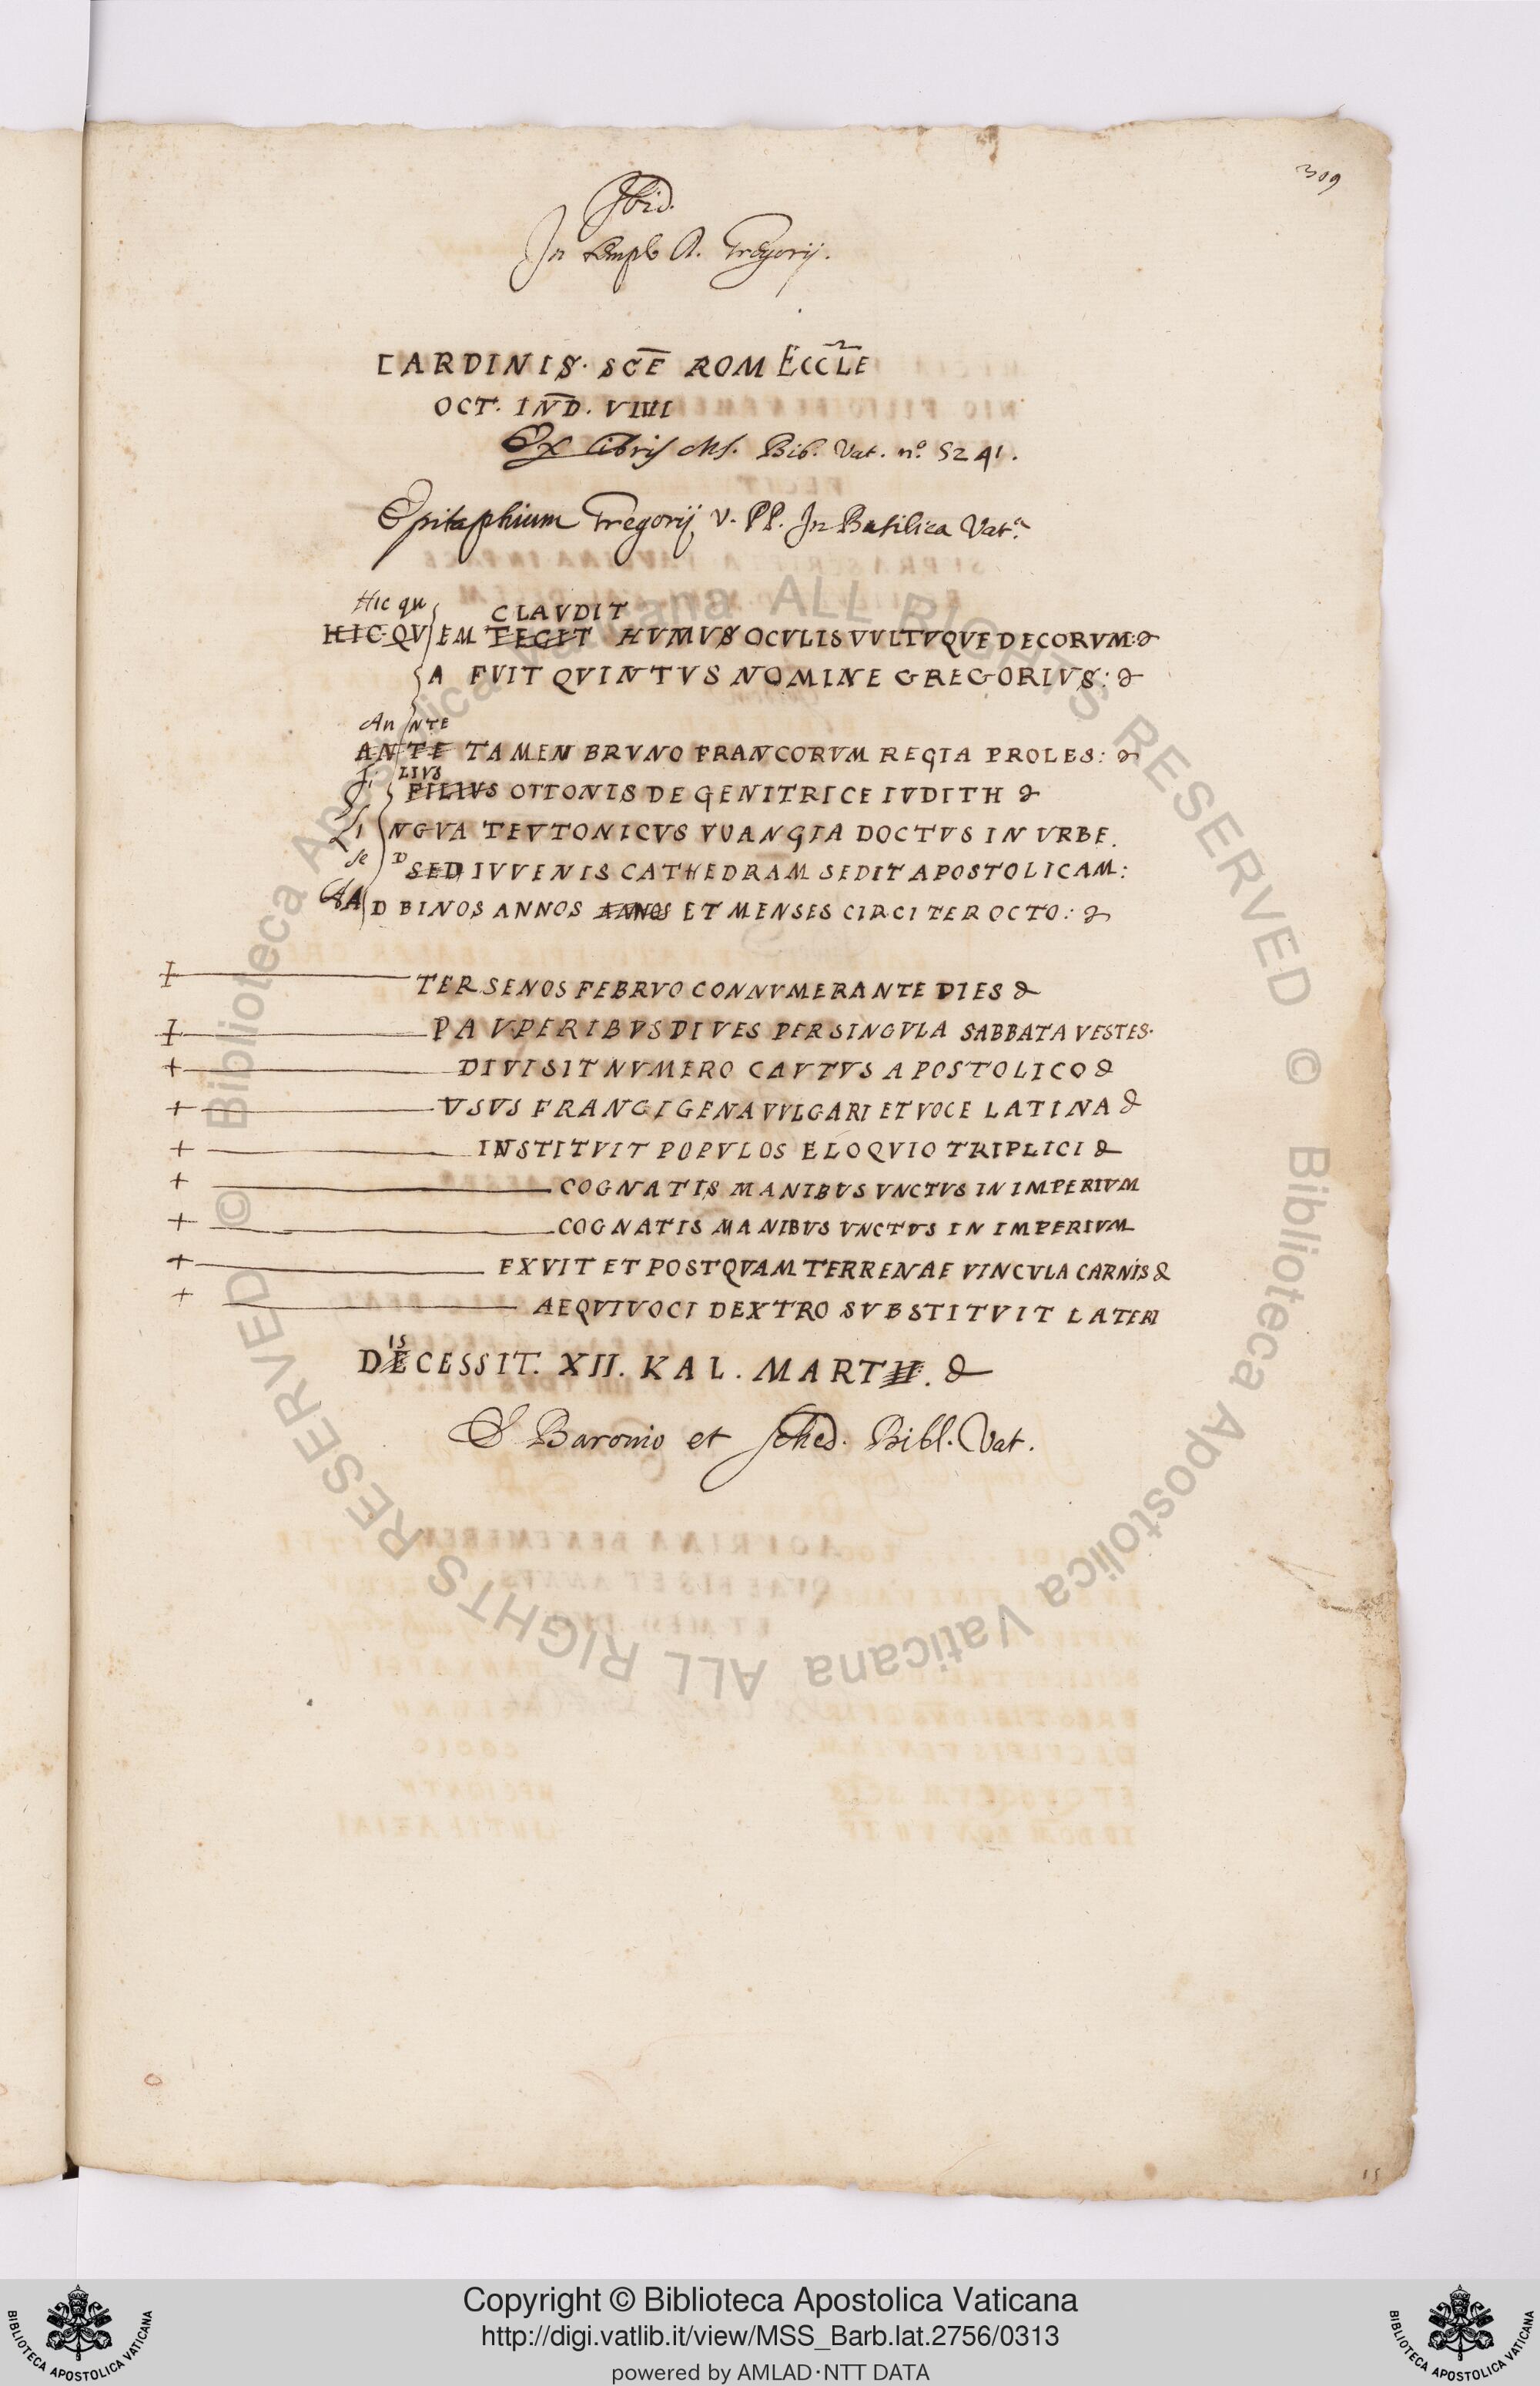 309
Ibid.
In templo S. Gregorij.
CARDINIS. SCE ROM ECCLE
OCT. IND. VIIII
Ex libris Ms. Bib. Vat. n.º 5241.
Epitaphium Gregorij V. PP. In Basilica Vat.ª
Hic qu CLAVDIT
HIC QVEM TEGIT HVMVS OCVLIS VVLTVQVE DECORVM:
A FVIT QVINTVS NOMINE GREGORIVS:
An NTE
ANTE TAMEN BRVNO FRANCORVM REGIA PROLES:
Fi LIVS
FILIVS OTTONIS DE GENITRICE IVDITH
LiNGVA TEVTONICVS VVANGIA DOCTVS IN VRBE.
Se D SED IVVENIS CATHEDRAM SEDIT APOSTOLICAM:
AD BINOS ANNOS ANNOS ET MENSES CIRCITER OCTO:
TER SENOS FEBRVO CONNVMERANTE DIES
PAVPERIBVS DIVES PER SINGVLA SABBATA VESTES.
DIVISIT NVMERO CAVTVS APOSTOLICO
VSVS FRANCIGENA VVLGARI ET VOCE LATINA
INSTITVIT POPVLOS ELOQVIO TRIPLICI
COGNATIS MANIBVS VNCTVS IN IMPERIVM
COGNATIS MANIBVS VNCTVS IN IMPERIVM
EXVIT ET POSTQVAM TERRENAE VINCVLA CARNIS
AEQVIVOCI DEXTRO SVBSTITVIT LATERI
IS
DECESSIT. XII. KAL. MART.
E Baronio et sched. Bibl. Vat.
15
© Biblioteca Apostolica Vaticana ALL RIGHTS RESERVED © Biblioteca Apostolica Vaticana ALL RIGHTS RESERVED
Copyright © Biblioteca Apostolica Vaticana
http://digi.vatlib.it/view/MSS_Barb.lat.2756/0313
powered by AMLAD·NTT DATA
BIBLIOTECA APOSTOLICA VATICANA
BIBLIOTECA APOSTOLICA VATICANA